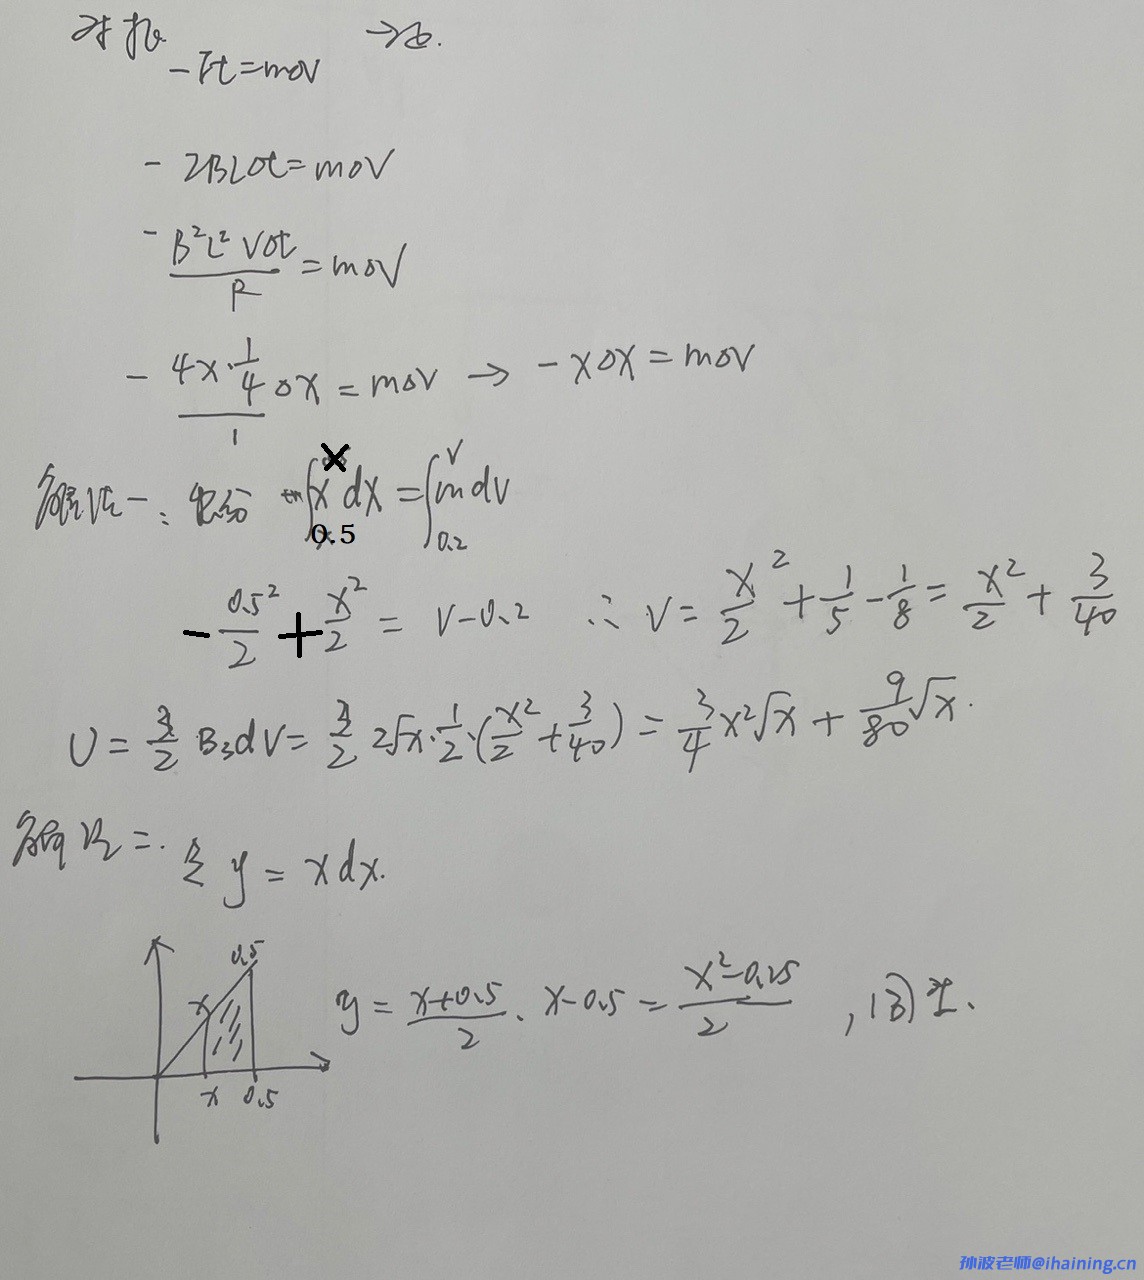 对
-Ft=m△v
-IBL△t=m△v
-B²L²V△t/R=m△v
-4x·1/4/1 △x=m△v → -x△x=m△v
解法一: 积分 ∫_0.5^x x dx=∫_0.2^v m dv
-0.5²/2+x²/2=v-0.2 ∴ v=x²/2+1/5-1/8=x²/2+3/40
U=3/2 B₃dv=3/2 2√x·1/2·(x²/2+3/40)=3/4x²√x+9/80√x.
解法二. 令 y=xdx.
0.5
x
x 0.5
y=x+0.5/2·x-0.5=x²-0.25/2,同上.
孙波老师@ihaining.cn